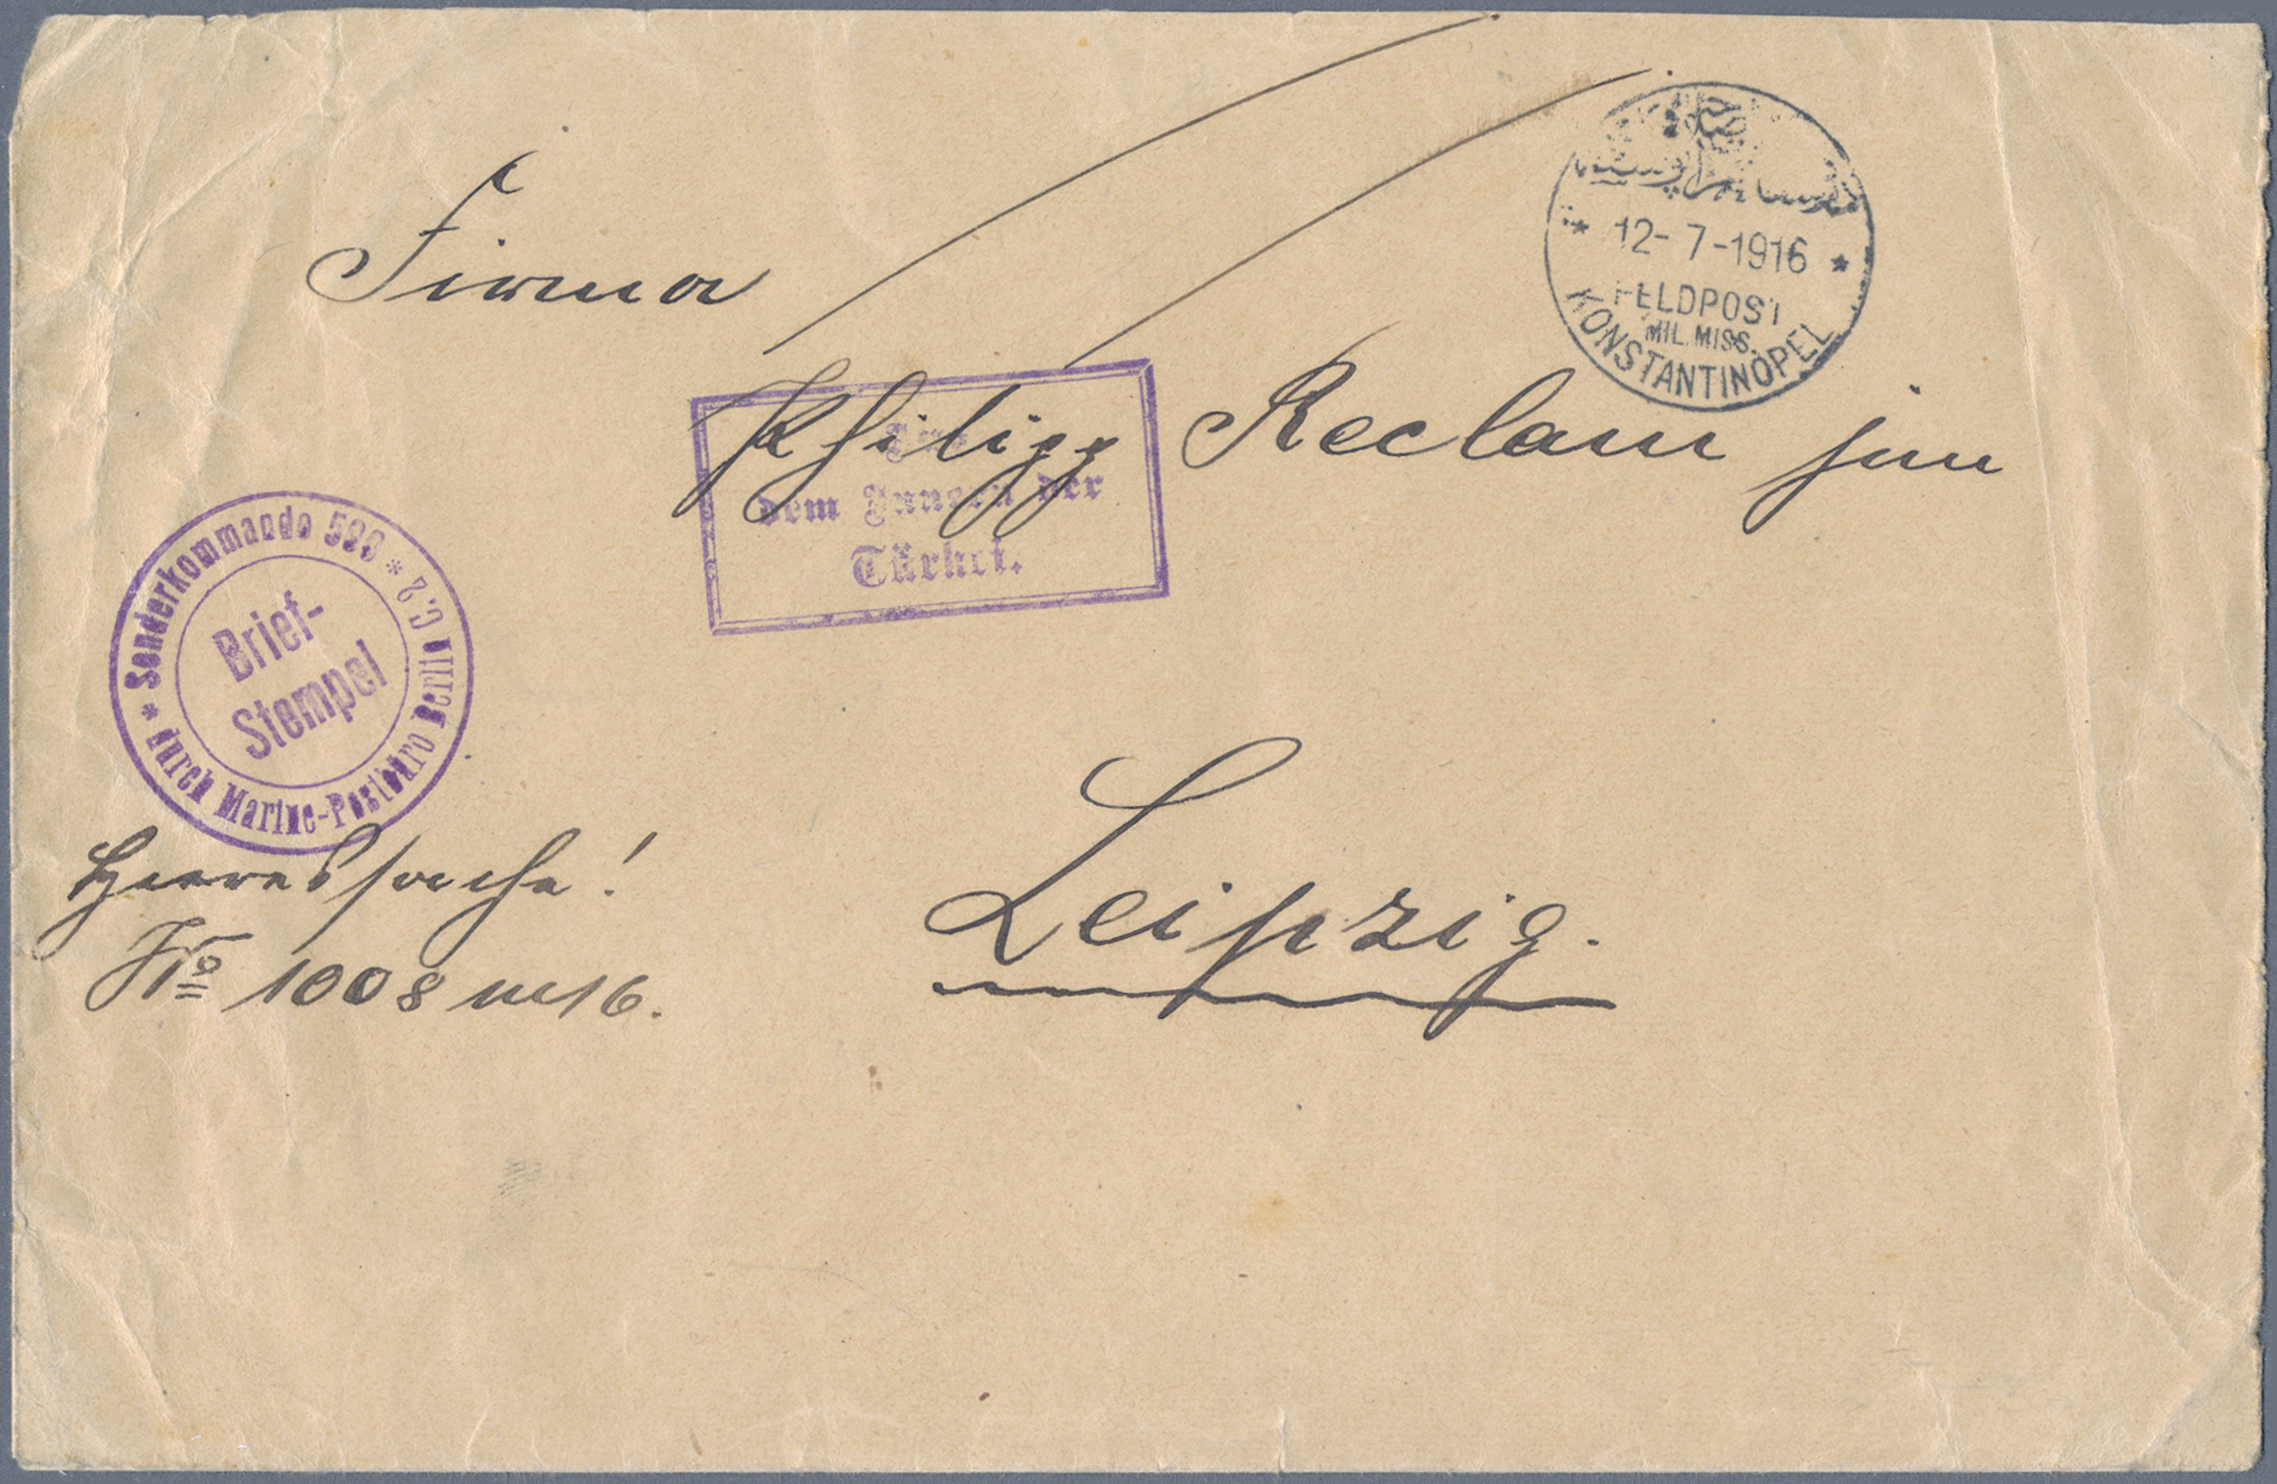 Firma
Philipp Reclam jun
Leipzig.
Heeressache!
No 1008 16.
12-7-1916
FELDPOST
MIL. MISS.
KONSTANTINOPEL
dem Innern der
Türkei.
* Sonderkommando * durch Marine-Postbüro Berlin C.2
Brief-
Stempel